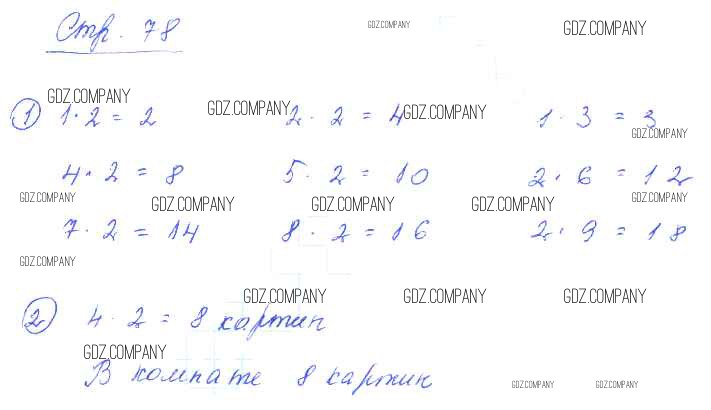 Стр. 78
GDZ.COMPANY GDZ.COMPANY
GDZ.COMPANY GDZ.COMPANY GDZ.COMPANY
① 1·2 = 2 2·2 = 4 1·3 = 3
GDZ.COMPANY
4·2 = 8 5·2 = 10 2·6 = 12
GDZ.COMPANY GDZ.COMPANY GDZ.COMPANY GDZ.COMPANY GDZ.COMPANY
7·2 = 14 8·2 = 16 2·9 = 18
GDZ.COMPANY
GDZ.COMPANY GDZ.COMPANY GDZ.COMPANY
② 4·2 = 8 картин
GDZ.COMPANY
В комнате 8 картин
GDZ.COMPANY GDZ.COMPANY